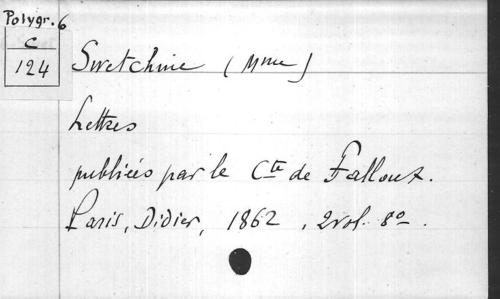 Polygr. 6
C
124
Swetchine (Mme)
Lettres
publiées par le Cte de Falloux.
Paris, Didier, 1862, 2 vol. 8º.